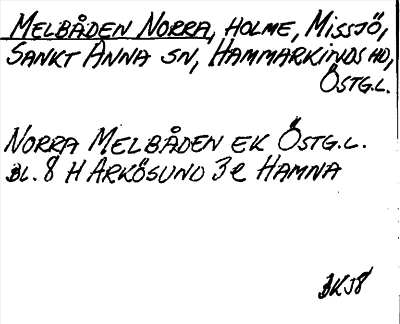 MELBÅDEN NORRA, HOLME, MISSJÖ,
SANKT ANNA SN, HAMMARKINDS HD,
ÖSTG.L.
NORRA MELBÅDEN EK ÖSTG.L.
BL. 8 H ARKÖSUND 3e HAMNA